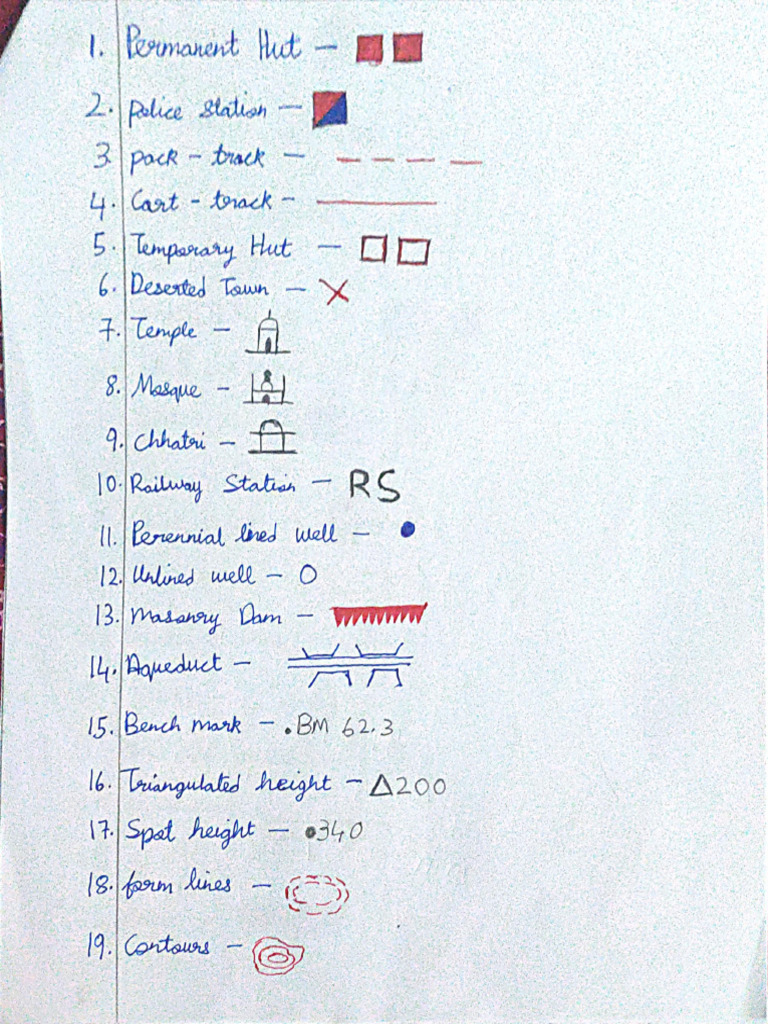 1. Permanent Hut -
2. Police Station -
3. pack - track -
4. Cart - track -
5. Temporary Hut -
6. Deserted Town -
7. Temple -
8. Mosque -
9. Chhatri -
10. Railway Station - RS
11. Perennial lined well -
12. Unlined well -
13. Masonry Dam -
14. Aqueduct -
15. Bench mark - .BM 62.3
16. Triangulated height - △200
17. Spot height - •340
18. form lines -
19. Contours -